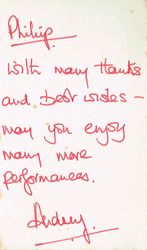 Philip
with many thanks
and best wishes -
may you enjoy
many more
performances.
Audrey.